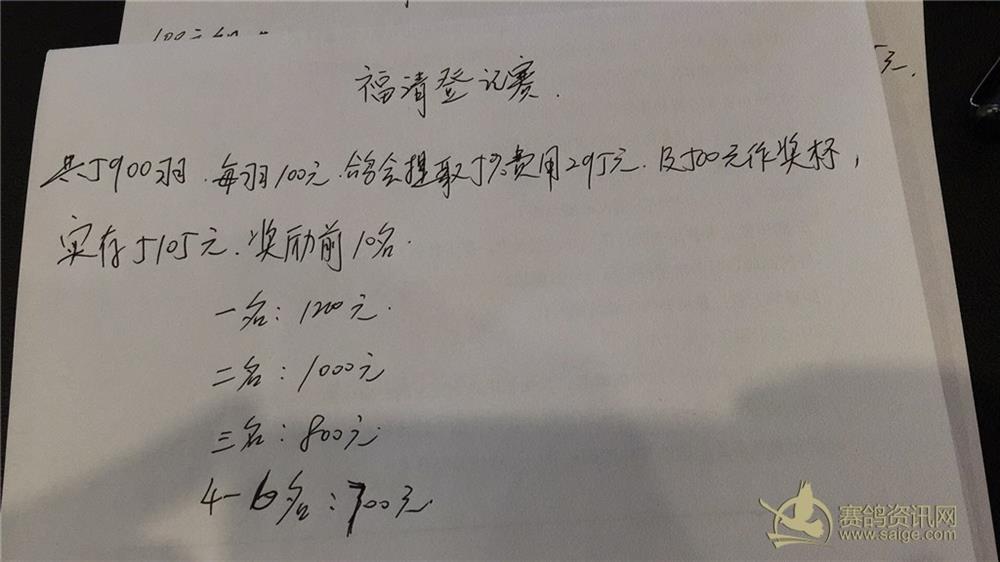 100元
元.
福清登记赛.
共5900羽.每羽100元.鸽会提取5%费用295元.及500元作奖杯,
实存5105元.奖励前10名.
一名:1200元.
二名:1000元
三名:800元
4-6名:700元.
赛鸽资讯网
www.saige.com